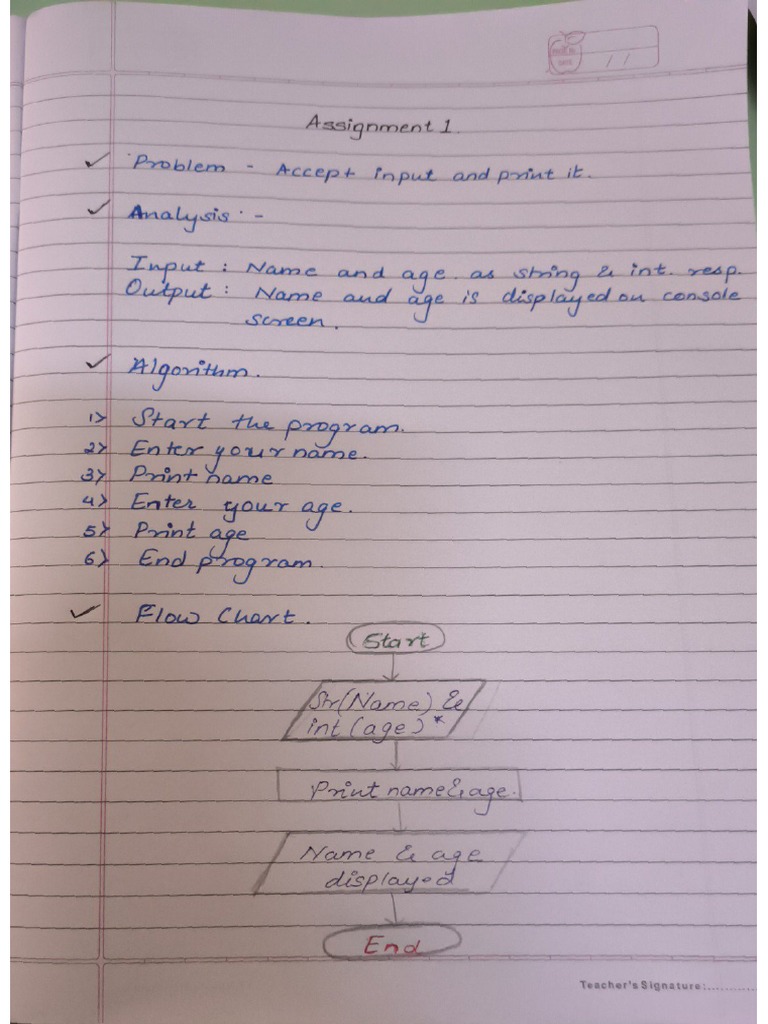 PAGE NO.
DATE
/ /
Assignment 1.
✓ Problem - Accept input and print it.
✓ Analysis : -
Input : Name and age as string & int. resp.
Output : Name and age is displayed on console
screen.
✓ Algorithm.
1) Start the program.
2) Enter your name.
3) Print name
4) Enter your age.
5) Print age
6) End program.
✓ Flow Chart.
Start
Str(Name) &
int (age) *
Print name & age.
Name & age
displayed
End
Teacher's Signature:...........